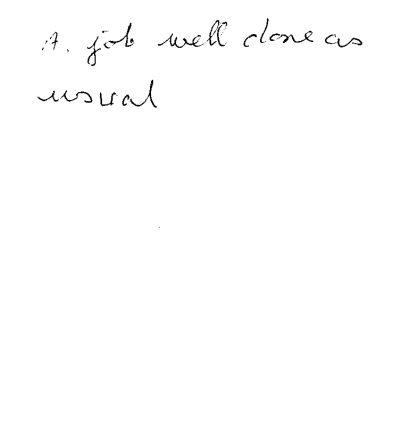 A. job well done as
usual